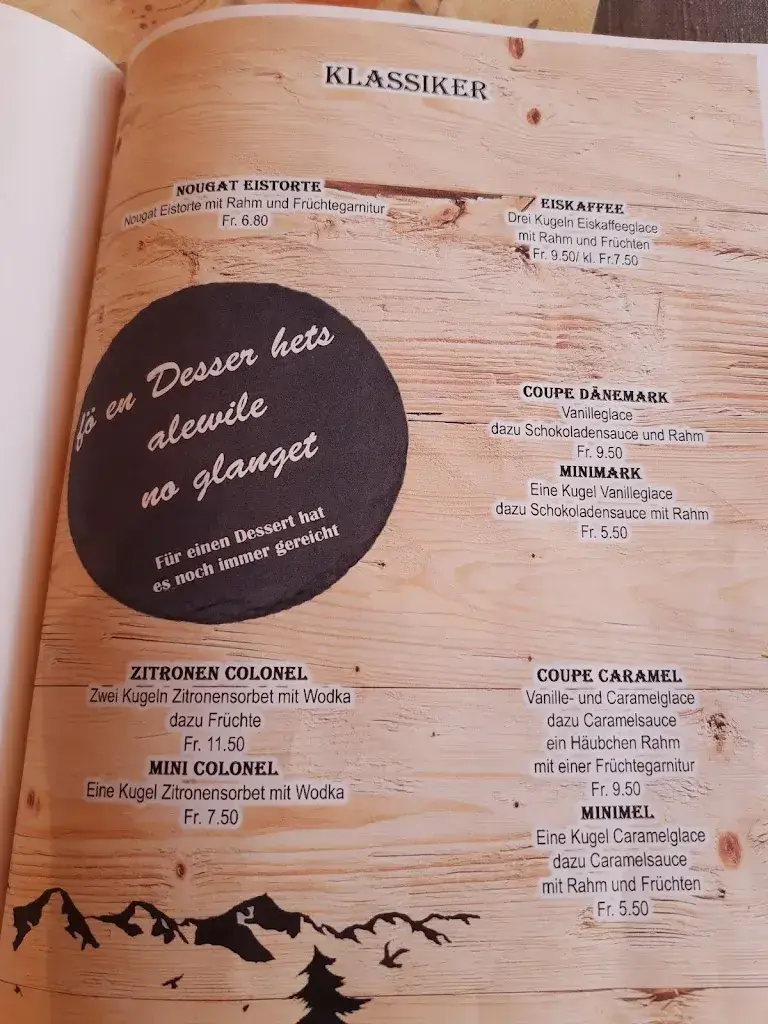 KLASSIKER
NOUGAT EISTORTE
Nougat Eistorte mit Rahm und Früchtegarnitur
Fr. 6.80
EISKAFFEE
Drei Kugeln Eiskaffeeglace
mit Rahm und Früchten
Fr. 9.50/ kl. Fr.7.50
fö en Desser hets
alewile
no glanget
Für einen Dessert hat
es noch immer gereicht
COUPE DÄNEMARK
Vanilleglace
dazu Schokoladensauce und Rahm
Fr. 9.50
MINIMARK
Eine Kugel Vanilleglace
dazu Schokoladensauce mit Rahm
Fr. 5.50
ZITRONEN COLONEL
Zwei Kugeln Zitronensorbet mit Wodka
dazu Früchte
Fr. 11.50
MINI COLONEL
Eine Kugel Zitronensorbet mit Wodka
Fr. 7.50
COUPE CARAMEL
Vanille- und Caramelglace
dazu Caramelsauce
ein Häubchen Rahm
mit einer Früchtegarnitur
Fr. 9.50
MINIMEL
Eine Kugel Caramelglace
dazu Caramelsauce
mit Rahm und Früchten
Fr. 5.50